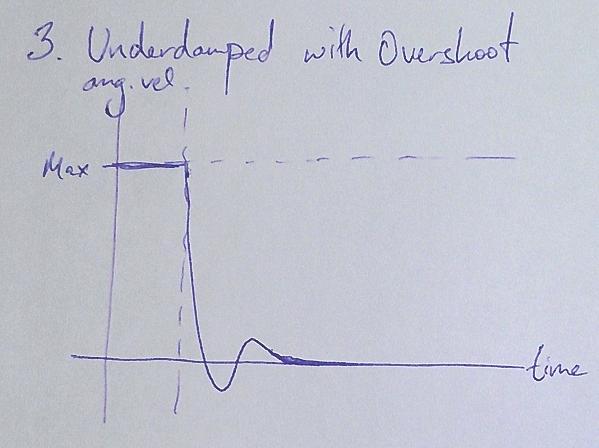 3. Underdamped with Overshoot
ang. vel.
Max
time